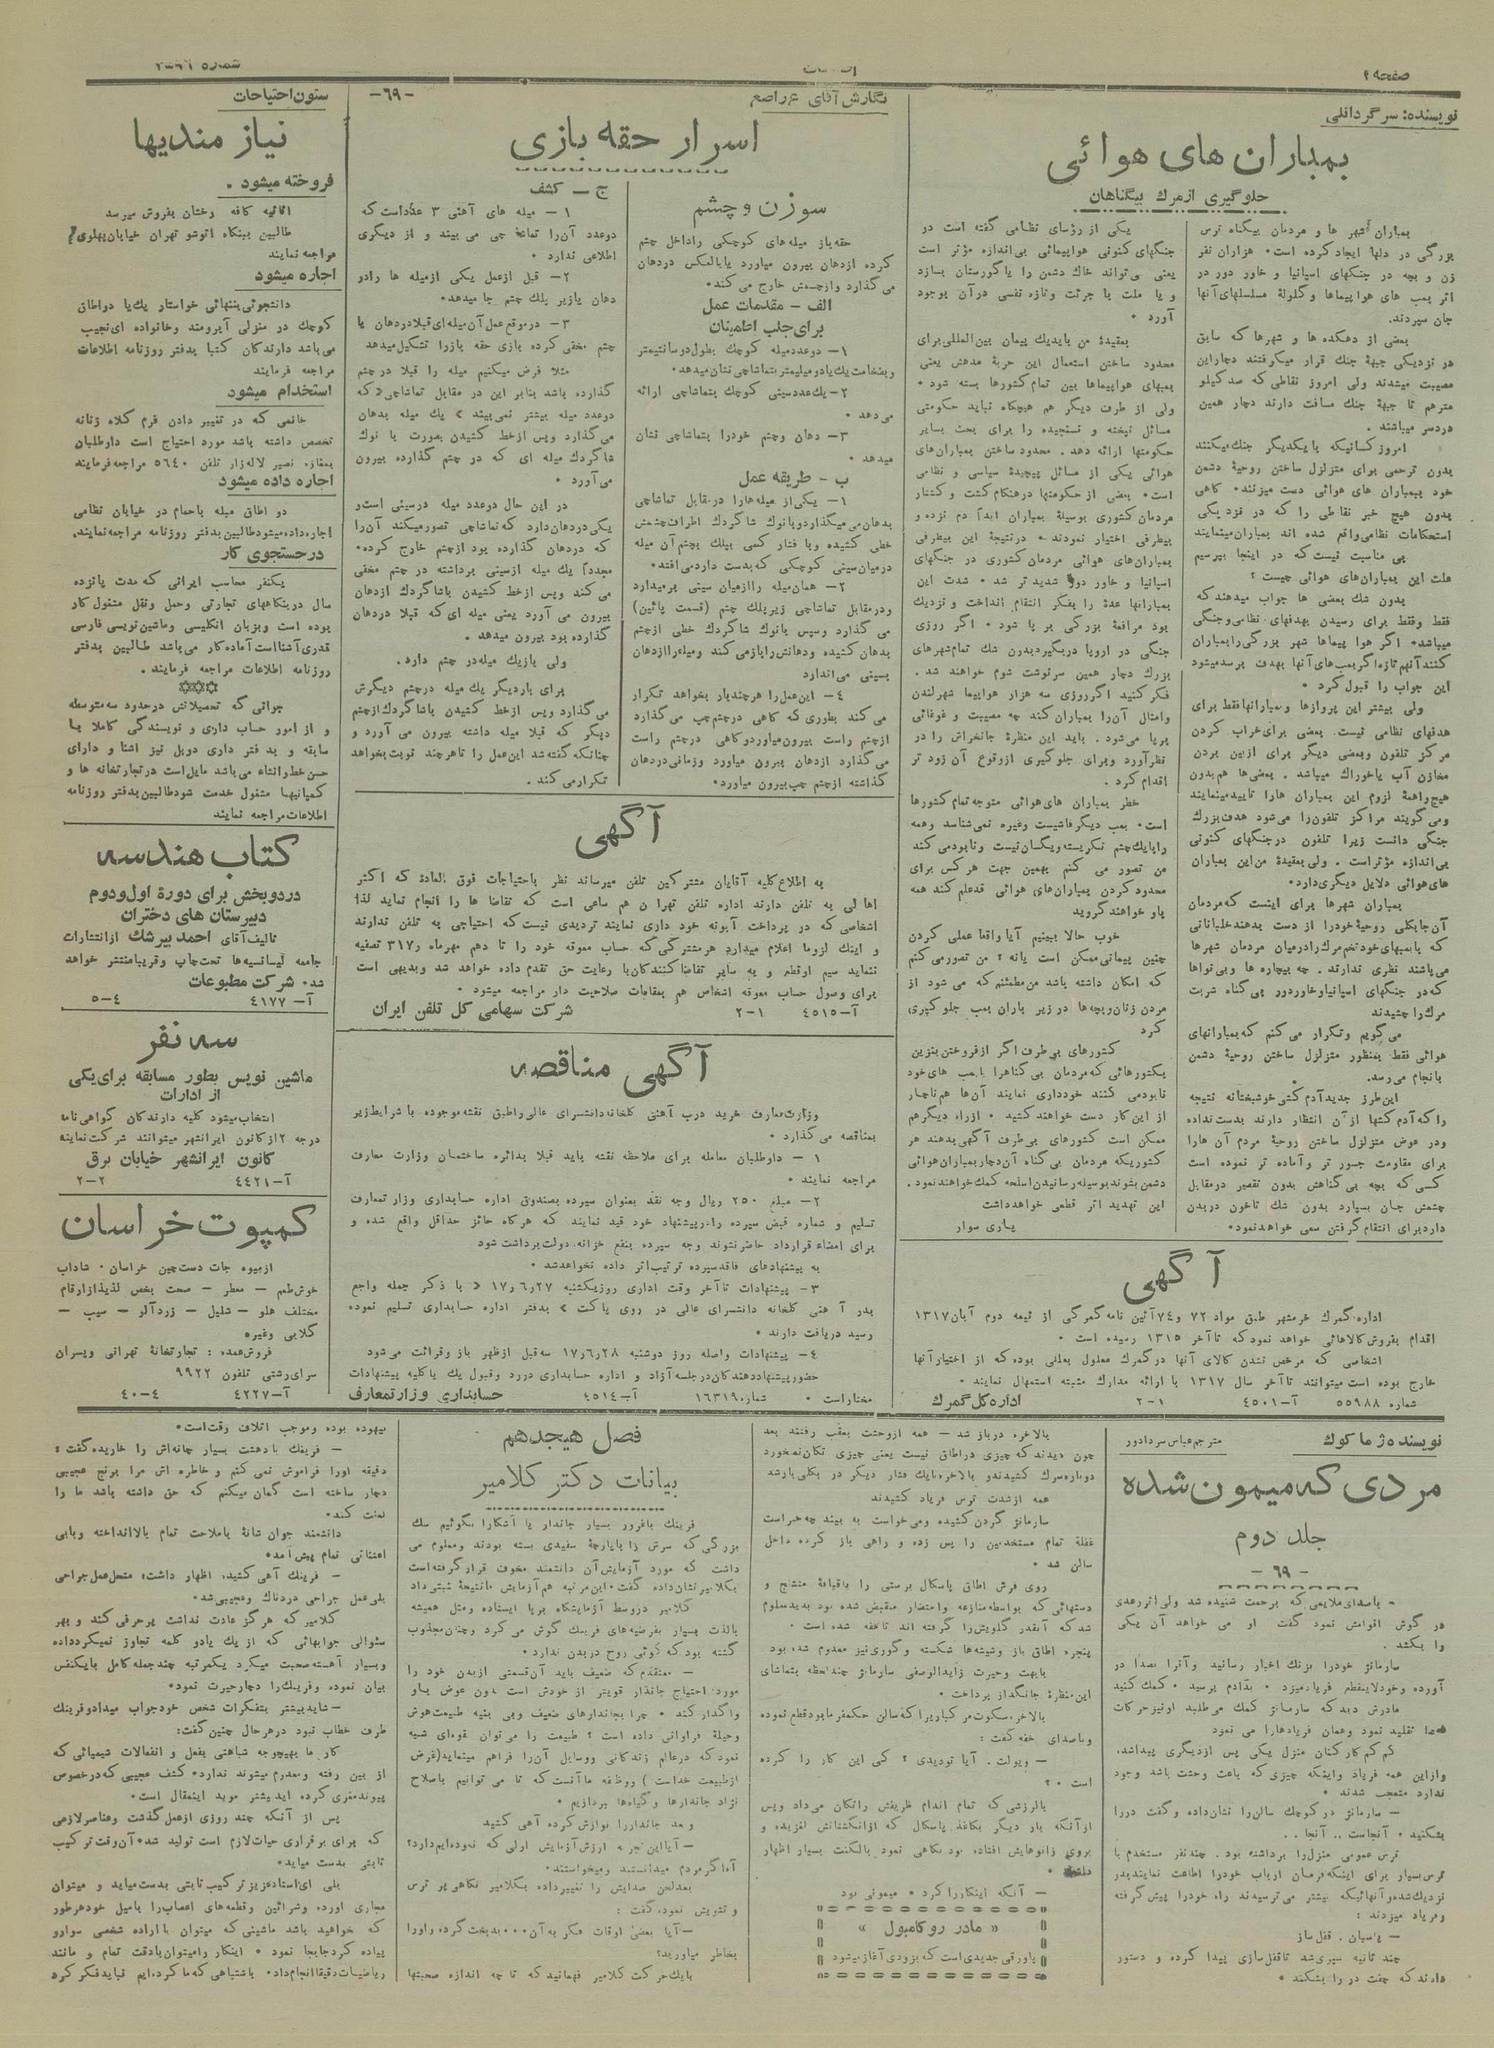 صفحه ۴
نویسنده: سرگرد اقلی
بمباران های هوائی
جلوگیری از مرك بیگناهان
بمباران شهر ها و مردمان بیگناه ترس
بزرگی در دلها ایجاد کرده است. هزاران نفر
زن و بچه در جنگهای اسپانیا و خاور دور در
اثر بمب های هواپیماها و گلوله مسلسلهای آنها
جان سپردند.
بعضی از دهکده ها و شهرها که سابق
در نزدیکی جبهه جنك قرار میگرفتند دچار این
مصیبت میشدند ولی امروز نقاطی که صد کیلو
مترهم تا جبهه جنك مسافت دارند دچار همین
دردسر میباشند .
امروز کسانیکه با یکدیگر جنك میکنند
بدون ترحمی برای متزلزل ساختن روحیهٔ دشمن
خود ببمباران های هوائی دست میزنند. گاهی
بدون هیچ خبر نقاطی را که در نزدیکی
استحکامات نظامی واقع شده اند بمباران مینمایند
بی مناسبت نیست که در اینجا بپرسیم
علت این بمباران های هوائی چیست ؟
بدون شك بعضی ها جواب میدهند که
فقط وفقط برای رسیدن بهدفهای نظامی و جنگی
میباشد. اگر هوا پیماها شهر بزرگی را بمباران
کنند آنهم تازه اگر بمب های آنها بهدف برسد میشود
این جواب را قبول کرد .
ولی بیشتر این پروازها و بمبارانها فقط برای
هدفهای نظامی نیست. بعضی برای خراب کردن
مرکز تلفون و بعضی دیگر برای از بین بردن
مخازن آب یا خوراك میباشد . بعضی ها هم بدون
هیچ واهمهٔ لزوم این بمباران هارا تایید مینمایند
و می گویند مراکز تلفون را می شود هدف بزرك
جنگی دانست زیرا تلفون در جنگهای کنونی
بی اندازه مؤثر است . ولی بعقیدهٔ من این بمباران
های هوائی دلایل دیگری دارد.
بمباران شهرها برای اینست که مردمان
که در جنگهای اسپانیا و خاور دور بی گناه شربت
مرك را چشیدند
می گویم و تکرار می کنم که بمبارانهای
هوائی فقط بمنظور متزلزل ساختن روحیهٔ دشمن
بانجام می رسد.
این طرز جدید آدم کشی خوشبختانه نتیجه
را که آدم کشها از آن انتظار دارند بدست نداده
و در عوض متزلزل ساختن روحیهٔ مردم آن هارا
برای مقاومت جسور تر و آماده تر نموده است
کسی که بچه بی گناهش بدون تقصیر در مقابل
چشمش جان بسپارد بدون شك تا خون در بدن
دارد برای انتقام گرفتن سعی خواهد نمود.
یکی از رؤسای نظامی گفته است در
جنگهای کنونی هواپیمائی بی اندازه مؤثر است
یعنی می تواند خاك دشمن را یا گورستان بسازد
و یا ملت با جرئت و تازه نفسی در آن بوجود
آورد .
بعقیدهٔ من باید يك پیمان بین المللی برای
محدود ساختن استعمال این حربهٔ مدهش یعنی
بمبهای هواپیماها بین تمام کشورها بسته شود .
ولی از طرف دیگر هم هیچگاه نباید حکومتی
مسائل نپخته و نسنجیده را برای بحث بسایر
حکومتها ارائه دهد. محدود ساختن بمباران های
هوائی یکی از مسائل پیچیدهٔ سیاسی و نظامی
است. بعضی از حکومتها در هنگام کشت و کشتار
مردمان کشوری بوسیلهٔ بمباران ابداً دم نزده و
بیطرفی اختیار نمودند . در نتیجهٔ این بیطرفی
بمباران های هوائی مردمان کشوری در جنگهای
اسپانیا و خاور دور شدید تر شد . شدت این
بمبارانها عدهٔ را بفکر انتقام انداخت و نزدیك
بود مرافعهٔ بزرگی بر پا شود . اگر روزی
جنگی در اروپا در بگیرد بدون شك تمام شهرهای
بزرك دچار همین سرنوشت شوم خواهند شد.
فکر کنید اگر روزی سه هزار هواپیما شهر لندن
و امثال آن را بمباران کند چه مصیبت و غوغائی
برپا می شود . باید این منظرهٔ جانخراش را در
نظر آورد و برای جلوگیری از وقوع آن زود تر
اقدام کرد .
خطر بمباران های هوائی متوجه تمام کشورها
است. بمب دیگر فاشیست و غیره نمی شناسد و همه
را بايك چشم نگریسته و یکسان نیست و نابود می کند
من تصور می کنم بهمین جهت هر کس برای
محدود کردن بمباران های هوائی قد علم کند همه
یاور خواهند گروید
خوب حالا ببینیم آیا واقعا عملی کردن
چنین پیمانی ممکن است یا نه ؟ من تصور می کنم
که امکان داشته باشد من مطمئنم که می شود از
مردن زنان و بچه ها در زیر باران بمب جلوگیری
کرد
کشورهای بی طرف اگر از فروختن بنزین
بکشورهائی که مردمان بی گناه را با بمب های خود
نابود می کنند خودداری نمایند آن ها هم ناچار
از این کار دست خواهند کشید . از راه دیگر هم
ممکن است کشورهای بی طرف آگهی بدهند هر
کشوریکه مردمان بی گناه آن دچار بمباران هوائی
دشمن بشوند بوسیله رسانیدن اسلحه کمك خواهند نمود.
این تهدید اثر قطعی خواهد داشت
پاری سوار
آگهی
اداره گمرك خرمشهر طبق مواد ۷۲ و ۷۴ آئین نامه گمرکی از نیمه دوم آبان ۱۳۱۷
اقدام بفروش کالاهائی خواهد نمود که تا آخر ۱۳۱۵ رسیده است .
اشخاصی که مرخص نشدن کالای آنها در گمرك معلول بعللی بوده که از اختیار آنها
خارج بوده است میتوانند تا آخر سال ۱۳۱۷ با ارائه مدارك مثبته استمهال نمایند .
شماره ۵۵۹۸۸ آ-۴۵۰۱ اداره کل گمرك ۱-۲
-۶۹-
اسرار حقه بازی
سوزن و چشم
حقه باز میله های کوچکی را داخل چشم
کرده از دهان بیرون میاورد یا بالعکس در دهان
می گذارد و از چشمش خارج می کند.
الف - مقدمات عمل
برای جلب اطمینان
۱- دو عدد میله کوچك بطول دو سانتیمتر
و بضخامت يك یا دو میلیمتر بتماشاچی نشان میدهد.
۲- يك عدد سینی کوچك بتماشاچی ارائه
می دهد .
۳- دهان و چشم خود را بتماشاچی نشان
میدهد .
ب - طریقه عمل
۱- یکی از میله هارا در مقابل تماشاچی
بدهان می میگذارد و بانوك شاگردك اطراف چشمش
خطی کشیده و با فشار کمی بپلك چشم آن میله
در میان سینی کوچکی که بدست دارد می افتد.
۲- همان میله را از میان سینی بر میدارد
و در مقابل تماشاچی زیر پلك چشم (قسمت پائین)
می گذارد و سپس بانوك شاگردك خطی از چشم
بدهان کشیده و دهانش را باز می کند و میله را از دهان
بسینی می اندازد
۴- این عمل را هر چند بار بخواهد تکرار
می کند بطوری که گاهی در چشم چپ می گذارد
از چشم راست بیرون میاورد و گاهی در چشم راست
می گذارد از دهان بیرون میاورد و زمانی در دهان
گذاشته از چشم چپ بیرون میاورد.
ج - کشف
۱- میله های آهنی ۳ عدد است که
دو عدد آن را تماشاچی می بیند و از دیگری
اطلاعی ندارد .
۲- قبل از عمل یکی از میله ها را در
دهان یا زیر پلك چشم جا میدهد.
۳- در موقع عمل آن میله ای قبلا در دهان یا
چشم مخفی کرده بازی حقه باز را تشکیل میدهد
مثلا فرض میکنیم میله را قبلا در چشم
گذارده باشد بنابر این در مقابل تماشاچی «که
دو عدد میله بیشتر نمی بیند» يك میله بدهان
می گذارد و پس از خط کشیدن بصورت با نوك
شاگردك میله ای که در چشم گذارده بیرون
می آورد .
در این حال دو عدد میله در سینی است و
یکی در دهان دارد که تماشاچی تصور میکند آن را
که در دهان گذارده بود از چشم خارج کرده.
مجدداً يك میله از سینی برداشته در چشم مخفی
می کند و پس از خط کشیدن با شاگردك از دهان
بیرون می آورد یعنی میله ای که قبلا در دهان
گذارده بود بیرون میدهد .
ولی باز يك میله در چشم دارد.
برای بار دیگر يك میله در چشم دیگرش
می گذارد و پس از خط کشیدن با شاگردك از چشم
دیگر که قبلا میله داشته بیرون می آورد و
چنانکه گفته شد این عمل را تا هر چند نوبت بخواهد
تکرار می کند .
آگهی
به اطلاع کلیه آقایان مشترکین تلفن میرساند نظر باحتیاجات فوق العادهٔ که اکثر
اهالی به تلفن دارند اداره تلفن تهران هم ساعی است که تقاضا ها را انجام نماید لذا
اشخاصی که در پرداخت آبونه خود داری نمایند تردیدی نیست که احتیاجی به تلفن ندارند
و اینك لزوما اعلام میدارد هر مشترکی که حساب معوقه خود را تا دهم مهرماه ۳۱۷ تصفیه
ننماید سیم او قطع و به سایر تقاضا کنندگان با رعایت حق تقدم داده خواهد شد و بدیهی است
برای وصول حساب معوقه اشخاص هم بمقامات صلاحیت دار مراجعه میشود .
آ-۴۵۱۵ ۱-۲ شرکت سهامی کل تلفن ایران
آگهی مناقصه
وزارت معارف خرید درب آهنی گلخانه دانشسرای عالی را طبق نقشه موجوده با شرایط زیر
بمناقصه می گذارد .
۱- داوطلبان معامله برای ملاحظه نقشه باید قبلا بدائره ساختمان وزارت معارف
مراجعه نمایند .
۲- مبلغ ۲۵۰ ریال وجه نقد بعنوان سپرده بصندوق اداره حسابداری وزارتمعارف
تسلیم و شماره قبض سپرده را در پیشنهاد خود قید نمایند که هر گاه حائز حداقل واقع شده و
برای امضاء قرارداد حاضر نشوند وجه سپرده بنفع خزانه دولت برداشت شود
به پیشنهادهای فاقد سپرده ترتیب اثر داده نخواهد شد .
۳- پیشنهادات تا آخر وقت اداری روز یکشنبه ۱۷٫۶٫۲۷ «با ذکر جمله راجع
بدر آهنی گلخانه دانشسرای عالی در روی پاکت» بدفتر اداره حسابداری تسلیم نموده
رسید دریافت دارند .
۴- پیشنهادات واصله روز دوشنبه ۱۷٫۶٫۲۸ سه قبل از ظهر باز و قرائت می شود
حضور پیشنهاد دهندگان در جلسه آزاد و اداره حسابداری در رد و قبول يك یا کلیه پیشنهادات
مختار است . شماره ۱۶۳۱۹ آ-۴۵۱۴ حسابداری وزارتمعارف
ستون احتیاجات
نیازمندیها
فروخته میشود .
اثاثیه کافه رختان بفروش میرسد
طالبین ببنگاه اتوشو تهران خیابان پهلوی
مراجعه نمایند
اجاره میشود
دانشجوئی بتنهائی خواستار يك یا دو اطاق
کوچك در منزلی آبرومند و خانواده ای نجیب
می باشد دارندگان کتبا بدفتر روزنامه اطلاعات
مراجعه فرمایند
استخدام میشود
خانمی که در تغییر دادن فرم کلاه زنانه
تخصص داشته باشد مورد احتیاج است داوطلبان
بمغازه نصیر لاله زار تلفن ۵۶۴۰ مراجعه فرمایند
اجاره داده میشود
دو اطاق مبله باحمام در خیابان نظامی
اجاره داده میشود طالبین بدفتر روزنامه مراجعه نمایند.
در جستجوی کار
یکنفر محاسب ایرانی که مدت پانزده
سال در بنگاههای تجارتی و حمل و نقل مشغول کار
بوده است و بزبان انگلیسی و ماشین نویسی فارسی
قدری آشنا است آماده کار می باشد طالبین بدفتر
روزنامه اطلاعات مراجعه فرمایند .
جوانی که تحصیلاتش در حدود سه متوسطه
و از امور حساب داری و نویسندگی کاملا با
سابقه و بدفتر داری دوبل نیز آشنا و دارای
حسن خط و انشاء می باشد مایل است در تجارتخانه ها و
کمپانیها مشغول خدمت شود طالبین بدفتر روزنامه
اطلاعات مراجعه نمایند
کتاب هندسه
در دو بخش برای دورهٔ اول و دوم
دبیرستان های دختران
تالیف آقای احمد بیرشك از انتشارات
جامعه لیسانسیه ها تحت چاپ و قریبا منتشر خواهد
شد. شرکت مطبوعات
آ-۴۱۷۷ ۴-۵
سه نفر
ماشین نویس بطور مسابقه برای یکی
از ادارات
انتخاب میشود کلیه دارندگان گواهی نامه
درجه ۲ از کانون ایرانشهر میتوانند شرکت نمایند
کانون ایرانشهر خیابان برق
آ-۴۴۲۱ ۲-۲
کمپوت خراسان
از میوه جات دست چین خراسان . شاداب
خوش طعم - معطر - صحت بخش لذیذ از ارقام
مختلف هلو - شلیل - زردآلو - سیب -
گلابی و غیره
فروش عمده : تجارتخانهٔ تهرانی و پسران
سرای رشتی تلفون ۹۹۲۲
آ-۴۲۲۷ ۴-۴۰
نویسنده ژ ماکوك
مترجم عباس سردادور
مردی که میمون شده
جلد دوم
-۶۹-
باصدای ملایمی که بزحمت شنیده شد ولی اثر رعدی
در گوش اقوامش نمود گفت او می خواهد آن یکی
را بکشد .
سارمانژ خود را بزنك اخبار رسانید و آنرا بصدا در
آورده و خود لاینقطع فریاد میزد . بدادم برسید . کمك کنید
مادرش دید که سارمانژ کمك می طلبد او نیز حرکات
تقلید نمود و همان فریادها را می نمود
کم کم کارکنان منزل یکی پس از دیگری پیدا شد،
و از این همه فریاد و اینکه چیزی که باعث وحشت باشد وجود
ندارد متعجب شدند .
- سارمانژ در کوچك سالن را نشان داده و گفت در را
بشکنید . آنجاست .. آنجا ..
ترس عمومی منزل را برداشته بود . چند نفر مستخدم با
ترس بسیار برای اینکه فرمان ارباب خود را اطاعت نمایند بدر
نزدیك شده و آنهائیکه بیشتر می ترسیدند راه خود را پیش گرفته
و فریاد میزدند :
- پاسبان . قفل ساز
چند ثانیه سپری شد تا قفل سازی پیدا کرده و دستور
دادند که چفت در را بشکند .
بالاخره در باز شد - همه از وحشت بعقب رفتند بعد
چون دیدند که چیزی در اطاق نیست یعنی چیزی تکان نمیخورد
دوباره سرك کشیدند و بالاخره بايك فشار دیگر در بکلی باز شد
همه از شدت ترس فریاد کشیدند
سارمانژ گردن کشیده و می خواست به بیند چه خبر است
غفلة تمام مستخدمین را پس زده و راهی باز کرده داخل
سالن شد .
روی فرش اطاق پاسکال برستی را باقیافهٔ متشنج و
دستهائی که بواسطه منازعه و احتضار منقبض شده بود بدید معلوم
شد که آنقدر گلویش را گرفته اند تا خفه شده است .
پنجره اطاق باز و شیشه ها شکسته و گوری نیز معدوم شده بود
بابهت و حیرت زاید الوصفی سارمانژ چند لحظه بتماشای
این منظرهٔ جانگداز پرداخت .
بالاخره سکوت مرگباریرا که سالن حکمفرما بود قطع نموده
و باصدای خفه گفت :
- ویولت . آیا تو دیدی ؟ کی این کار را کرده
است .؟
بالرزشی که تمام اندام ظریفش را تکان می داد و پس
از آنکه بار دیگر بکاغذ پاسکال که از انگشتانش لغزیده و
بروی زانوهایش افتاده بود نگاهی نمود بالکنت بسیار اظهار
داشت .
- آنکه اینکار را کرد . میمونی بود
« مادر روکامبول »
پاورقی جدیدی است که بزودی آغاز میشود
فصل هیجدهم
بیانات دکتر کلامیر
فرینك باغرور بسیار جاندار یا آشکارا بگوئیم سك
بزرگی که سرش را با پارچهٔ سفیدی بسته بودند و معلوم می
داشت که مورد آزمایش آن دانشمند مخوف قرار گرفته است
بکلامیر نشان داده گفت . این مرتبه هم آزمایش ما نتیجهٔ مثبتی داد
کلامیر در وسط آزمایشگاه برپا ایستاده و مثل همیشه
بالذت بسیار بفرضیه های فرینك گوش می کرد و چنان مجذوب
گشته بود که گوئی روح در بدن ندارد .
- معتقدم که ضعیف باید آن قسمتی از بدن خود را
مورد احتیاج جاندار قویتر از خودش است بدون عوض باو
واگذار کند . چرا بجاندارهای ضعیف و بی بنیه طبیعت هوش
و حیلهٔ فراوانی داده است ؟ طبیعت را می توان قوه ای شبیه
نمود که در عالم زندگانی و وسایل آن را فراهم مینماید (غرض
از طبیعت خداست ) و وظیفه ما آنست که تا می توانیم باصلاح
نژاد جاندارها و گیاهها بپردازیم .
و بعد جاندار را نوازش کرده آهی کشید
- آیا این تجربه ارزش آزمایش اولی که نموده ایم دارد؟
آه اگر مردم میدانستند و میخواستند.
بعد لحن صدایش را تغییر داده بکلامیر نگاهی پر ترس
و تشویش نموده گفت :
- آیا بعضی اوقات فکر به آن ... بدبخت کرده و او را
بخاطر میاورید؟
بايك حرکت کلامیر فهمانید که تا چه اندازه صحبتها
بیهوده بوده و موجب اتلاف وقت است.
- فرینك بادهشت بسیار چانه اش را خاریده گفت :
دقیقه اورا فراموش نمی کنم و خاطره اش مرا برنج عجیبی
دچار ساخته است گمان میکنم که حق داشته باشد ما را
لعنت کند.
دانشمند جوان شانهٔ باملاحت تمام بالا انداخته و بابی
اعتنائی تمام پیش آمد.
- فرینك آهی کشید، اظهار داشت: متحمل عمل جراحی
بلی عمل جراحی دردناك و عجیبی شد.
کلامیر که هرگز عادت نداشت پر حرفی کند و بهر
سئوالی جوابهائی که از يك یا دو کلمه تجاوز نمیکرد داده
و بسیار آهسته صحبت میکرد یکمرتبه چند جمله کامل بایکنفس
بیان نموده و فرینك را دچار حیرت نمود.
- شاید بیشتر بتفکرات شخص خود جواب میداد و فرینك
طرف خطاب نبود در هر حال چنین گفت:
کار ما بهیچوجه شباهتی بفعل و انفعالات شیمیائی که
از بین رفته و معدوم میشوند ندارد. کشف عجیبی که در خصوص
پیوند مغزی کرده اید بیشتر موید اینمقال است.
پس از آنکه چند روزی از عمل گذشت و عناصر لازمی
که برای برقراری حیات لازم است تولید شد. آن وقت ترکیب
ثابتی بدست میاید.
بلی ای استاد عزیز ترکیب ثابتی بدست میاید و میتوان
مجاری آورده و شرائین و قطعه های اعصاب را بامیل خود هر طور
که خواهید باشد ماشینی که میتوان با اراده شخصی سوار و
پیاده کرد جابجا نمود . اینکار را میتوان بادقت تمام و مانند
ریاضیات دقیقا انجام داد. باشتباهی که ما کرده ایم نباید فکر کرد